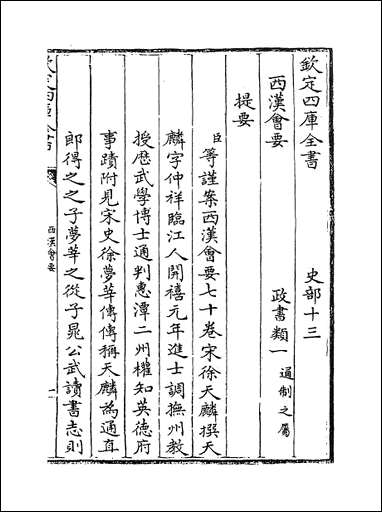 欽定四庫全書
史部十三
西漢會要
政書類一
通制之屬
提要
臣等謹案西漢會要七十卷宋徐天麟撰天
麟字仲祥臨江人開禧元年進士調撫州教
授歷武學博士通判惠潭二州權知英德府
事蹟附見宋史徐夢莘傳傳稱天麟為通直
郎得之之子夢莘之從子晁公武讀書志則
西漢會要
一